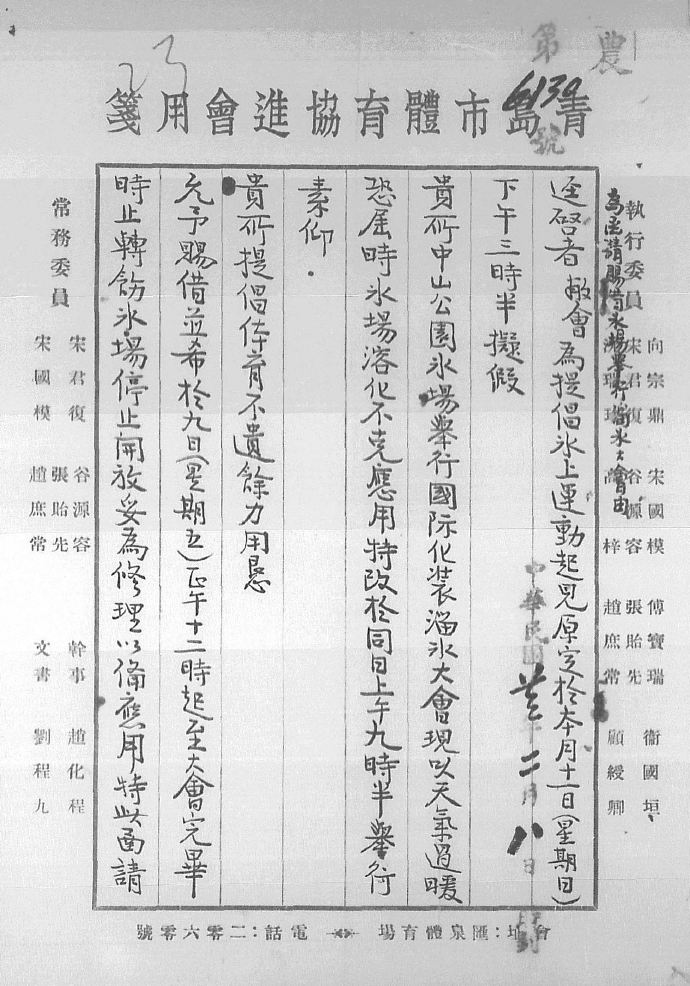 農
第
6130
號
青島市體育協進會用箋
執行委員
向宗鼎 宋國模 傅寶瑞 衞國垣
宋君復 谷源容 張貽先 顧綬卿
高梓 趙庶常
為函請賜借冰場舉行溜冰大會由
逕啓者敝會為提倡冰上運動起見原定於本月十一日(星期日)
下午三時半擬假
貴所中山公園冰場舉行國际化裝溜冰大會現以天氣過暖
恐屆時冰場溶化不克應用特改於同日上午九時半舉行
素仰
貴所提倡体育不遺餘力用恳
允予賜借並希於九日(星期五)正午十二時起至大會完畢
時止轉飭冰場停止開放妥為修理以備應用特此函請
中華民國廿三年二月八日 到
常務委員
宋君復 谷源容
宋國模 張貽先
趙庶常
幹事 趙化程
文書 劉程九
會址:匯泉體育場 電話:二零六零號